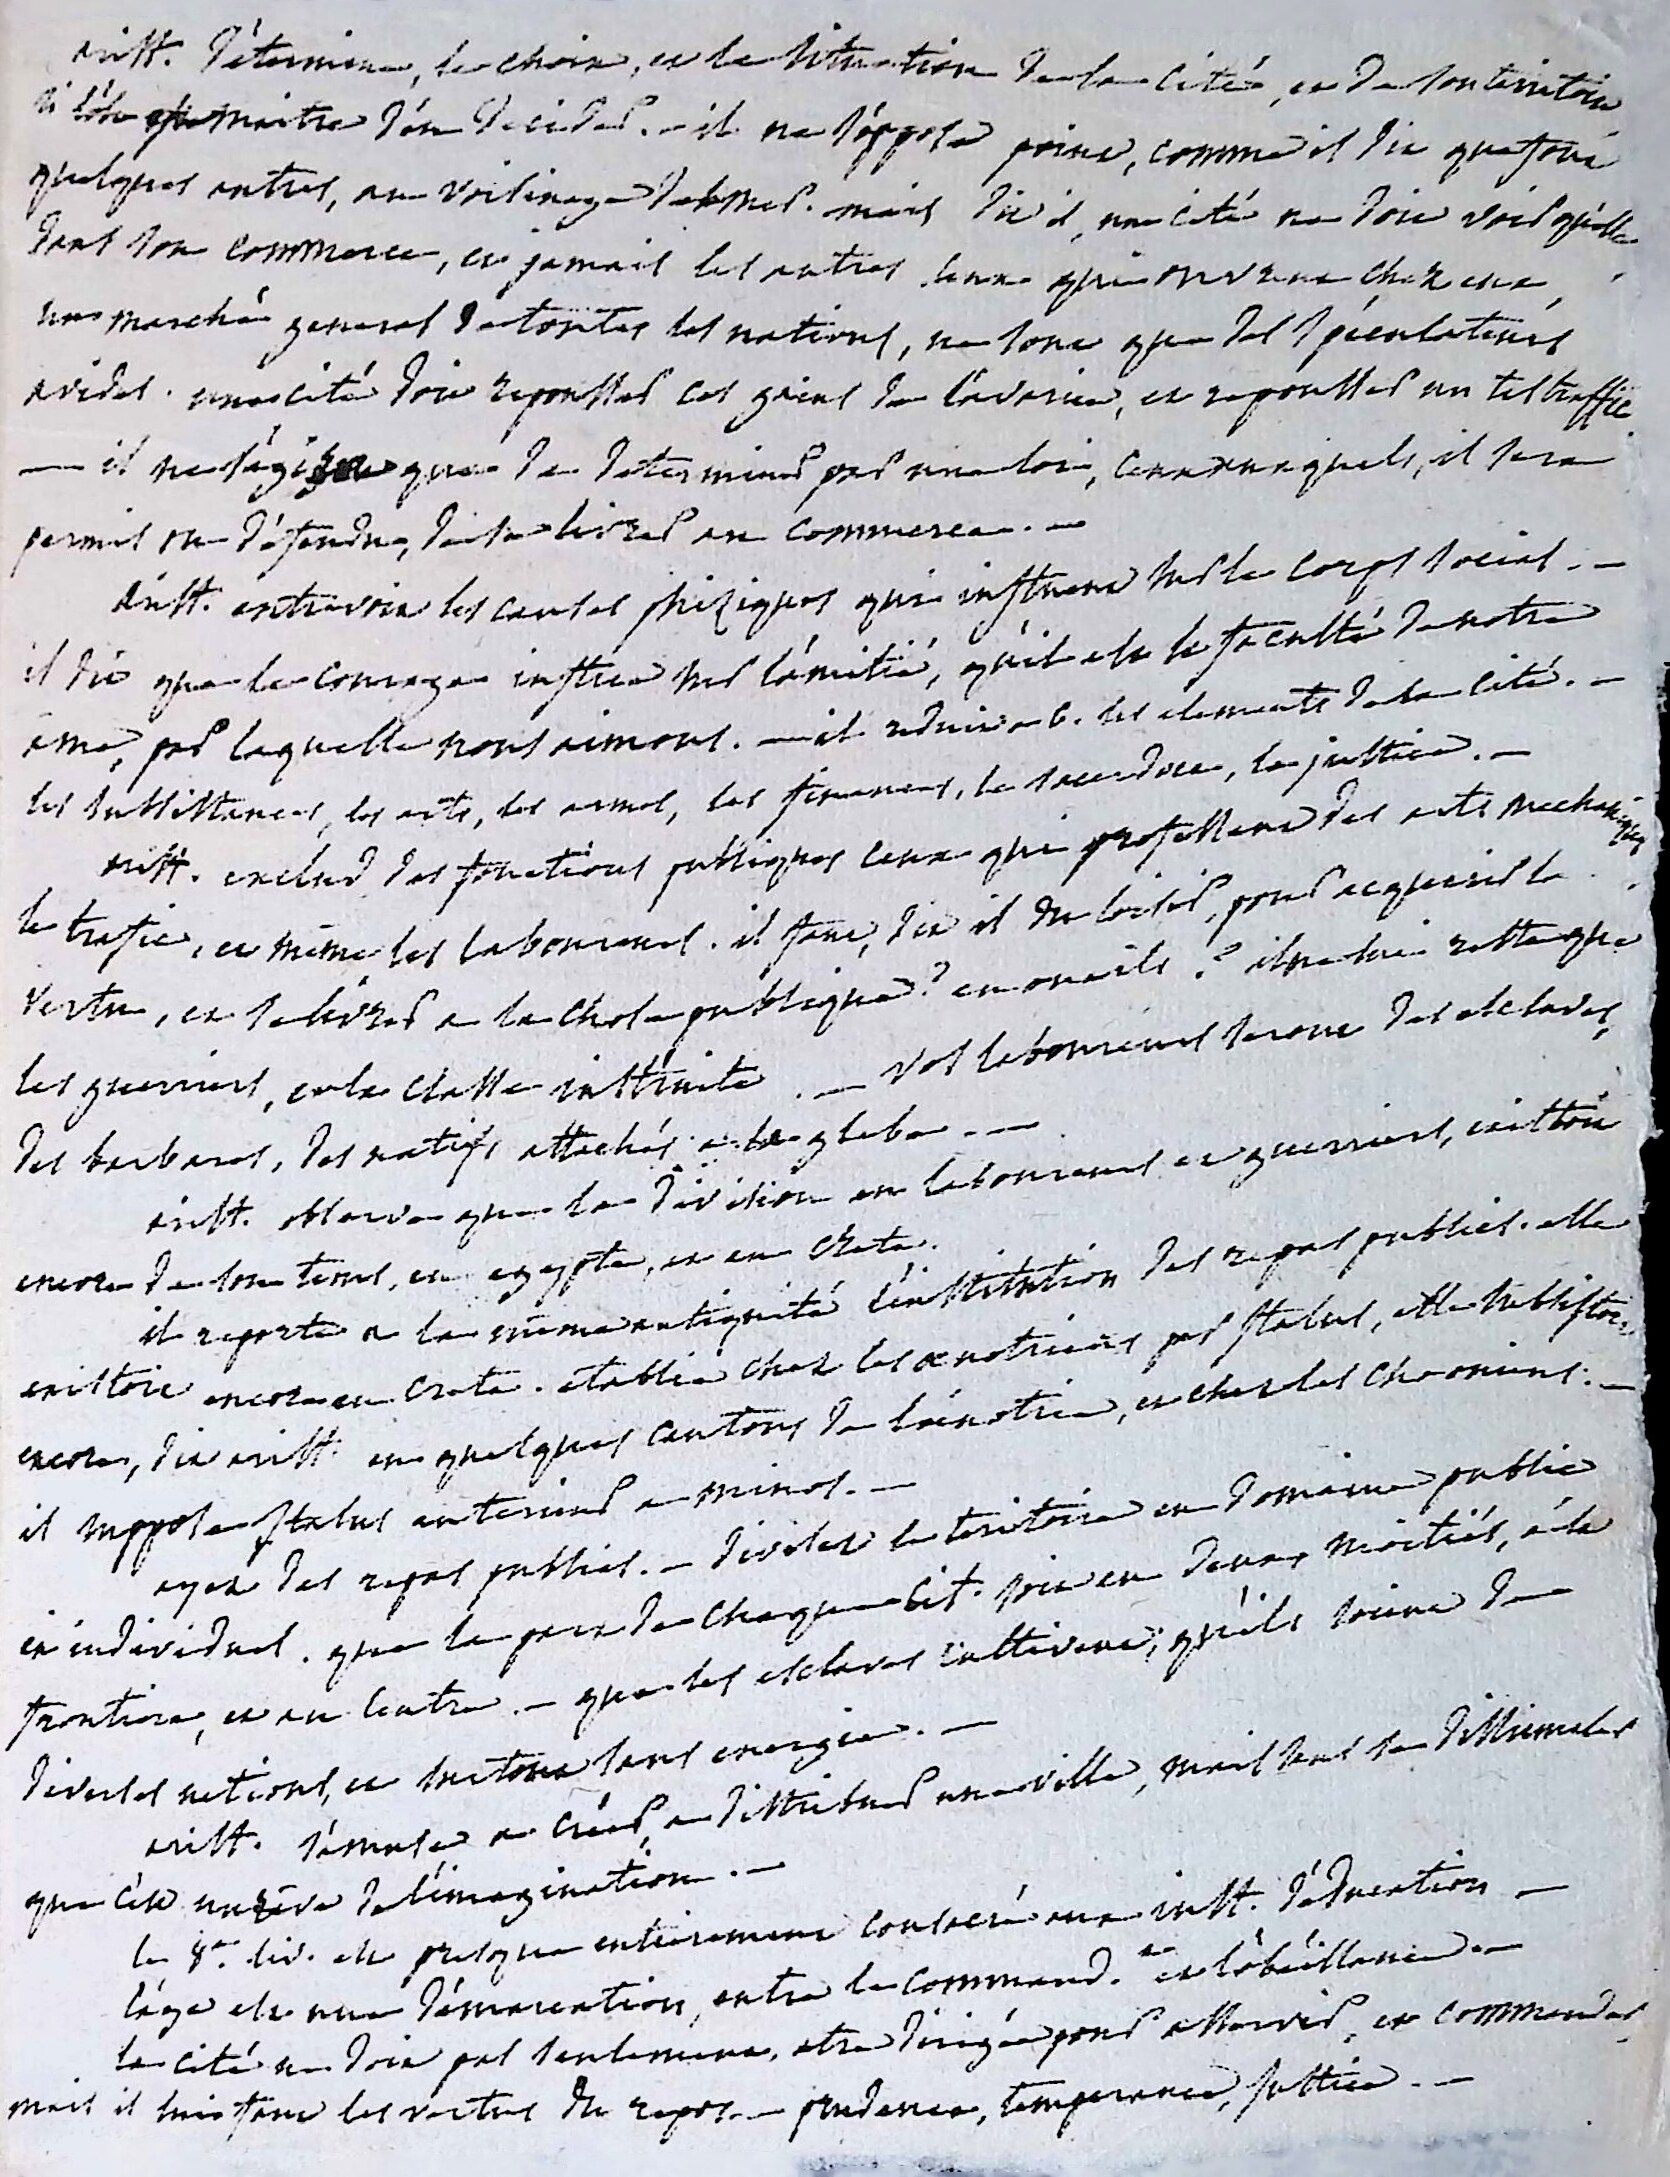 arist. détermine, le choix, et la situation de la cité, et de son territoire
si l'on est maitre d'en decider. - il ne s'oppose point, comme il dit que font
quelques autres, au voisinage des mers. mais dit il, une cité ne doit voir qu'elle
dans son commerce, et jamais les autres. ceux qui ouvrent chez eux,
un marché general de toutes les nations, ne sont que des spéculateurs
avides. une cité doit repousser ces gains de l'avarice, et repousser un tel traffic
— il ne s'agit que de determiner par une loi, ceux auxquels, il sera
permis ou défendu, de se livrer au commerce. -
arist. entrevoit les causes phiziques qui influent sur le corps social. -
il dit que le courage influe sur l'amitié, qu'il est la faculté de notre
ame, par laquelle nous aimons. - il réduit a 6. les elements de la cité. -
les subsistances, les arts, les armes, les finances, le sacerdoce, la justice. -
arist. exclud des fonctions publiques ceux qui professent des arts mechaniques
le trafic, et même les laboureurs. il faut, dit il du loisir, pour acquerir la
vertu, et se livrer a la chose publique? en ont ils? il ne lui reste que
les guerriers, et la classe instruite. - vos laboureurs seront des esclaves,
des barbares, des natifs attachés a la glebe. -
arist. observe que la division en laboureurs et guerriers, existoit
encore de son tems, en egypte, et en Crete.
il reporte a la même antiquité l'institution des repas publics. elle
existoit encore en Crete. etablie chez les oenotriens par Italus, elle subsistoit
encore, dit arist. en quelques cantons de l'oenotrie, et chez les chaoniens. -
il suppose Italus anterieur a minos. -
ayez des repas publics. - divisez le territoire en domaine public
et individuel. que la part de chaque cit. soit en deux moitiés, a la
frontiere, et au centre. - que les esclaves cultivent; qu'ils soient de
diverses nations, et surtout sans energie. -
arist. s'amuse a créer, a distribuer une ville, mais sans se dissimuler
que c'est un rêve de l'imagination. -
le 8e. liv. est presque entierement consacré aux inst. d'éducation -
l'age est une démarcation, entre le command.nt et l'obéissance. -
la cité ne doit pas seulement, etre dirigée pour asservir, et commander,
mais il lui faut les vertus du repos. - prudence, temperance, justice. -